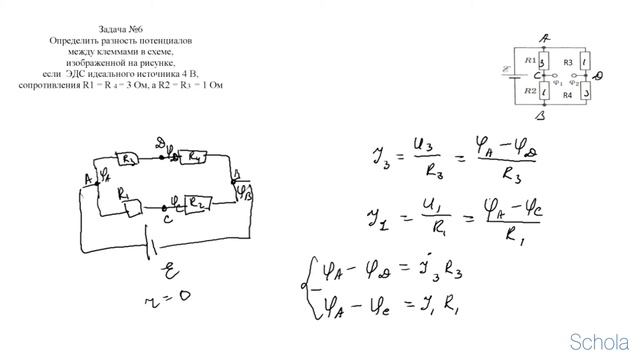 Задача №6
Определить разность потенциалов
между клеммами в схеме,
изображенной на рисунке,
если ЭДС идеального источника 4 В,
сопротивления R1 = R 4 = 3 Ом, а R2 = R3 = 1 Ом
A
R1 3 R3 1
C φ₁ φ₂ D
R2 1 R4 3
B
D φD
R3 R4
A φA B φB
R1 φC R2
C
ℰ
r = 0
I₃ = U₃/R₃ = (φA − φD)/R₃
I₁ = U₁/R₁ = (φA − φC)/R₁
φA − φD = I₃ R₃
φA − φC = I₁ R₁
Schola